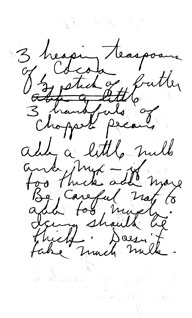 3 heaping teaspoons
of Cocoa
½ stick of butter
add a little
3 handfuls of
chopped pecans
add a little milk
and mix - if
too thick add more
Be careful not to
add too much.
icing should be
thick. Doesn't
take much milk.